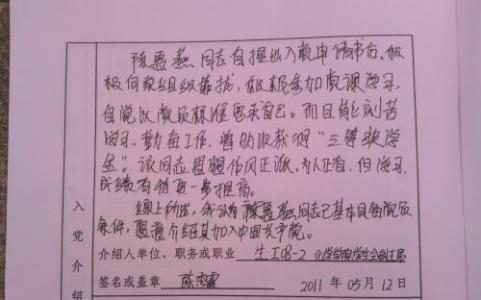 陈愚燕同志自提出入党申请书后,积
极向党组织靠拢,积极参加党课学习,
自觉以党员标准要求自己。而且能刻苦
学习,勤奋工作,曾多次获得"三等奖学
金"。该同志思想作风正派,为人正直,但学习
成绩有待进一步提高。
综上所述,我认为陈愚燕同志已基本具备党员
条件,愿意介绍其加入中国共产党。
入
党
介
绍
介绍人单位、职务或职业 生工08-2 化学学院学生会副主席
签名或盖章
2011 年 05 月 12 日